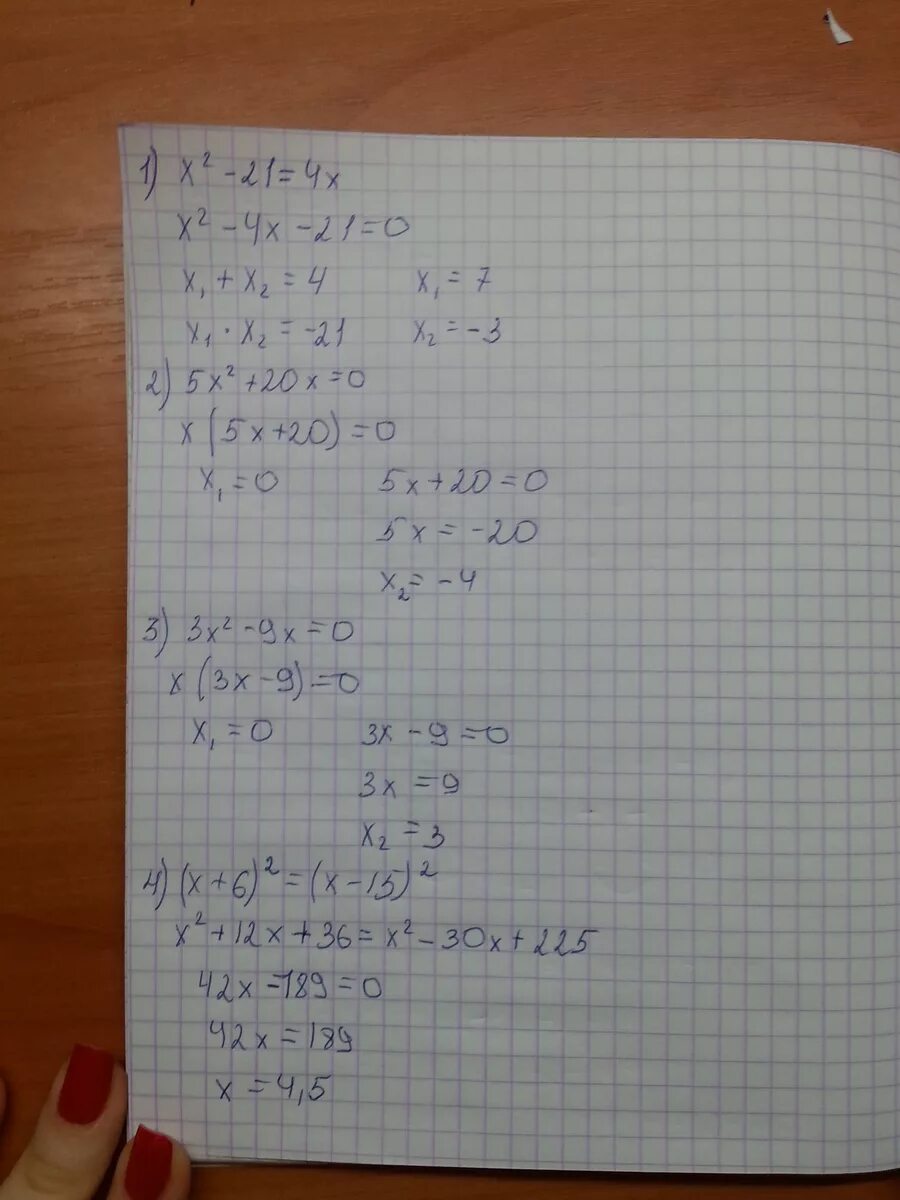 1) x² - 21 = 4x
x² - 4x - 21 = 0
x₁ + x₂ = 4 x₁ = 7
x₁ · x₂ = -21 x₂ = -3
2) 5x² + 20x = 0
x (5x + 20) = 0
x₁ = 0 5x + 20 = 0
5x = -20
x₂ = -4
3) 3x² - 9x = 0
x (3x - 9) = 0
x₁ = 0 3x - 9 = 0
3x = 9
x₂ = 3
4) (x + 6)² = (x - 15)²
x² + 12x + 36 = x² - 30x + 225
42x - 189 = 0
42x = 189
x = 4,5